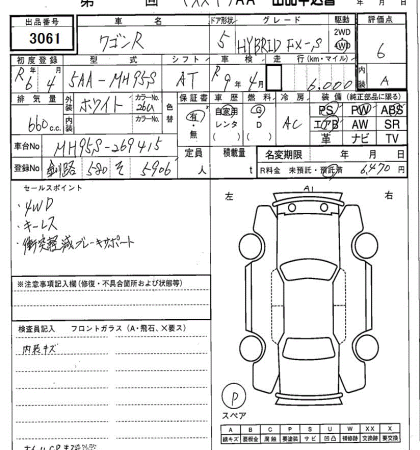 第 回 AA 出品申込書 年 月 日
出品番号 車名 ドア形状 グレード 駆動 評価点
3061 ワゴンR 5 HYBRID FX-S 2WD 4WD 6
初度登録 型式 シフト 車検 走行(km・マイル) 内装
R6年4月 5AA-MH95S AT R9年4月 6,000 A
排気量 外装 ホワイト カラーNo. 26U 色替 保証書 車歴 燃料 冷房 装備(純正部品に限る)
660cc 内装 カラーNo. 有・無 自家用 レンタ G D AC PS PW ABS
エアB AW SR
革 ナビ TV
車台No MH95S-269415 定員 人 積載量 t 名変期限 年 月 日
登録No 釧路 580 そ 5906 R料金 未預託・預託済 6,470円
セールスポイント
・4WD
・キーレス
・衝突軽減ブレーキサポート
左 右
A1
※注意事項記入欄(修復・不具合箇所および状態等)
検査員記入 フロントガラス(A・飛石、×要ス)
内装キズ
P
スペア
A B C P S U W X XX
線キズ 要板金 腐蝕 要塗装 サビ 凹凸 補修跡 要交換 交換済